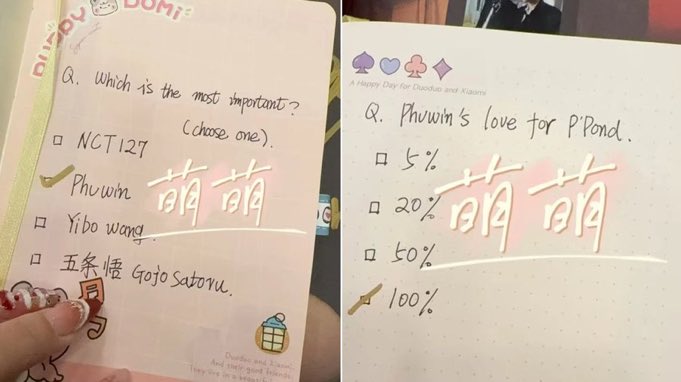 PUPPY DOMI
Q. Which is the most important?
(choose one).
NCT127
Phuwin
Yibo wang.
五条悟 Gojo Satoru.
萌萌
Duoduo and Xiaomi
And their good friends
They live in a
A Happy Day for Duoduo and Xiaomi
Q. Phuwin's love for P'Pond.
5%
20%
50%
100%
萌萌